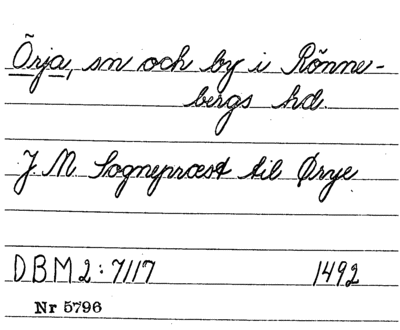 Örja, sn och by i Rönne-
bergs hd.
J. M. Sognepræst til Ørye
DBM 2:7117 1492
Nr 5796